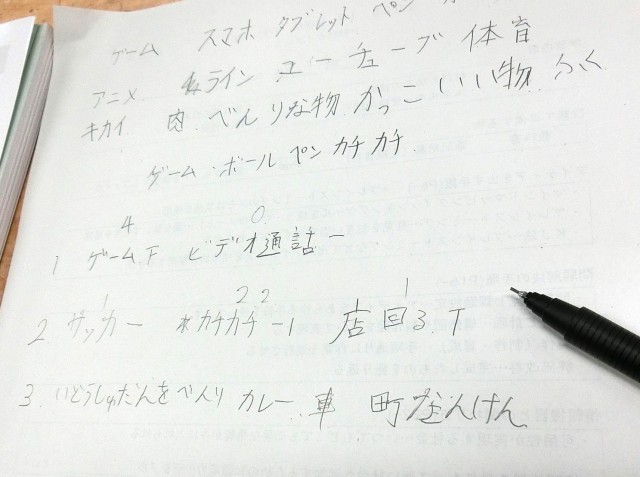 ゲーム スマホ タブレット ペン
アニメ ライン ユーチューブ 体育
キカイ 肉 べんりな物 かっこいい物 ふく
ゲーム・ボールペン カチカチ
4 0
1 ゲーム下 ビデオ通話ー
1 2 2 1
2. サッカー カチカチー1 店回3.T
3. いどうしゅだんをべんり カレー 車 町たんけん